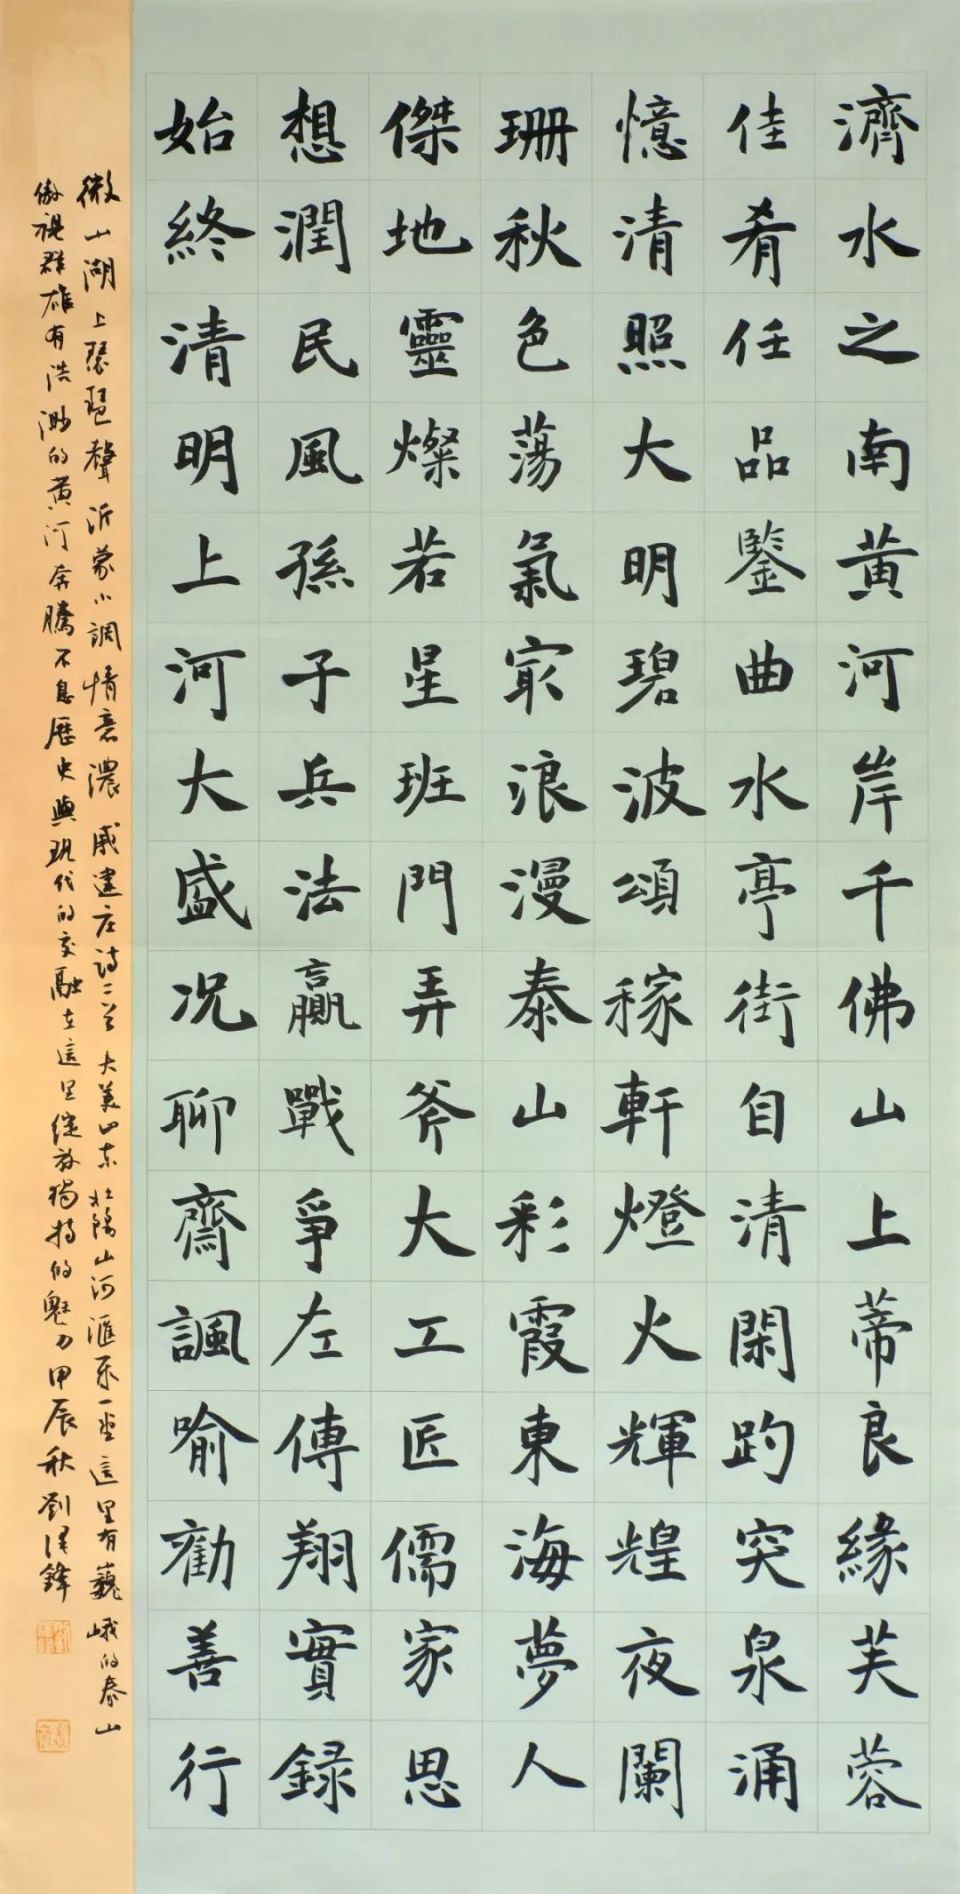 濟水之南黄河岸千佛山上蒂良緣芙蓉
佳肴任品鑒曲水亭街自清閑趵突泉涌
憶清照大明碧波頌稼軒燈火輝煌夜闌
珊秋色蕩氣最浪漫泰山彩霞東海夢人
傑地靈燦若星班門弄斧大工匠儒家思
想潤民風孫子兵法贏戰爭左傳翔實録
始終清明上河大盛况聊齋諷喻勸善行
微山湖上琵琶聲沂蒙小調情意濃戚建庄詩二首大美山東壯闊山河滙聚一堂這里有巍峨的泰山
傲視群雄有浩渺的黄河奔騰不息歷史與現代的交融在這里綻放獨特的魅力甲辰秋劉鋒